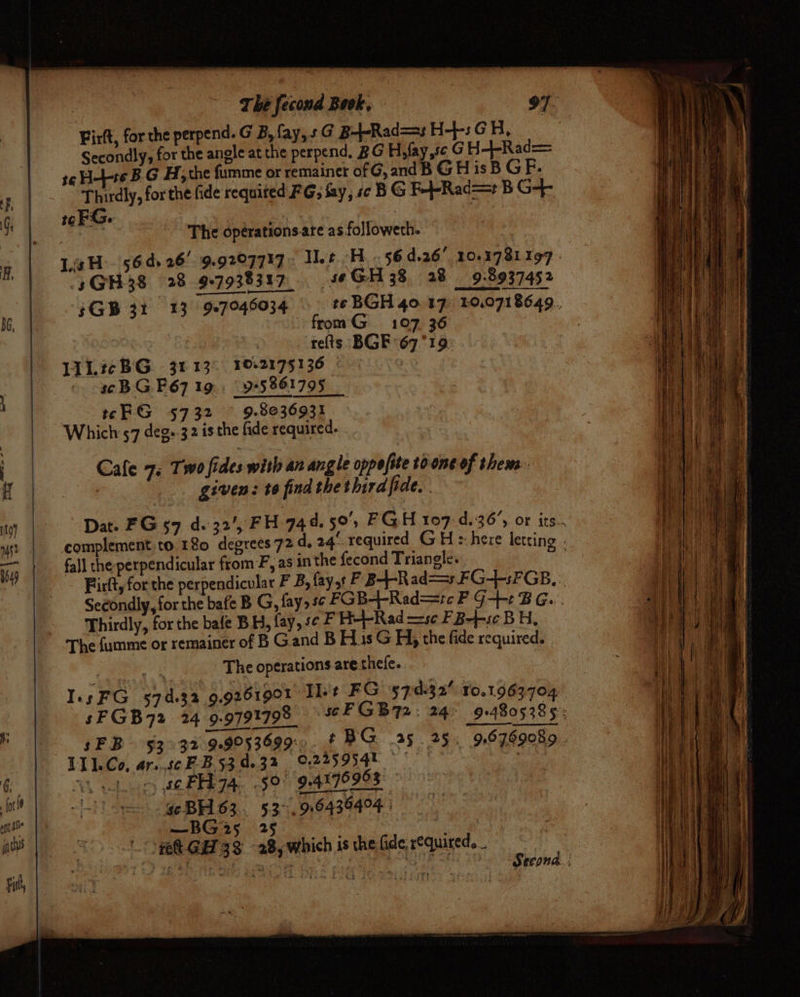 The ſecond Book, 97
Firſt, for the perpend. G B, ſay, s G B+Rad==s H+s G H,
Secondly, for the angle at the perpend. B G H, ſay, sc G H+Rad==
tc H+tc B G H, the ſumme or remainer of G, and B G H is B G F.
Thirdly, for the ſide required F G, ſay, sc B G F+Rad==t B G+
tc F G.
The operations are as followeth.
I. s H 56 d. 26′ 9.9207717 II. t H 56 d. 26′ 10.1781197
s GH 38 28 9.7938317 sc GH 38 28 9.8937452
s GB 31 13 9.7046034 tc BGH 40 17 10.0718649
from G 107 36
reſts BGF 67 19
III. tc BG 31 13 10.2175136
sc B G F 67 19 9.5861795
tc F G 57 32 9.8036931
Which 57 deg. 32 is the ſide required.
Caſe 7. Two ſides with an angle oppoſite to one of them
given: to find the third ſide.
Dat. FG 57 d. 32′, FH 74 d. 50′, FGH 107 d. 36′, or its
complement to 180 degrees 72 d. 24′ required GH: here letting
fall the perpendicular from F, as in the ſecond Triangle.
Firſt, for the perpendicular F B, ſay, s F B+Rad==s FG+s FGB.
Secondly, for the baſe B G, ſay, sc FGB+Rad==tc F G+t B G.
Thirdly, for the baſe B H, ſay, sc F H+Rad==sc F B+sc B H.
The ſumme or remainer of B G and B H is G H, the ſide required.
The operations are theſe.
I. s FG 57 d. 32 9.9261901 II. t FG 57 d. 32′ 10.1963704
s FGB 72 24 9.9791798 sc F G B 72 24 9.4805385
s F B 53 32 9.9053699 t BG 25 25 9.6769089
III. Co. ar. sc F B 53 d. 32 0.2259541
sc FH 74 50 9.4176963
sc BH 63 53 9.6436404
—BG 25 25
reſt GH 38 28, which is the ſide required.
Second